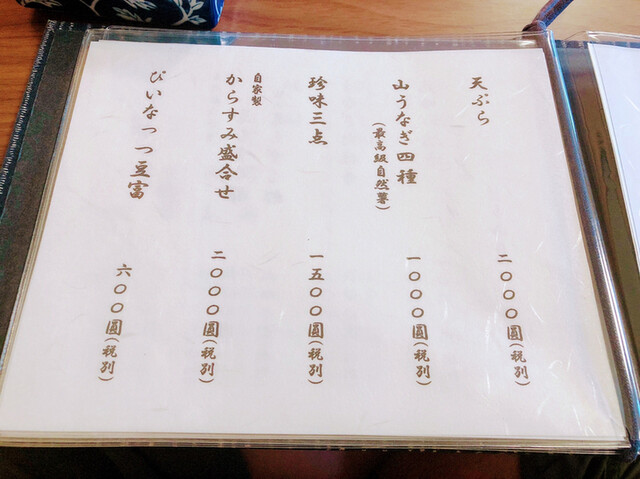 天ぷら
二〇〇〇圓(税別)
山うなぎ四種
(最高級自然薯)
一〇〇〇圓(税別)
珍味三点
一五〇〇圓(税別)
自家製
からすみ盛合せ
二〇〇〇圓(税別)
ぴいなっつ豆富
六〇〇圓(税別)